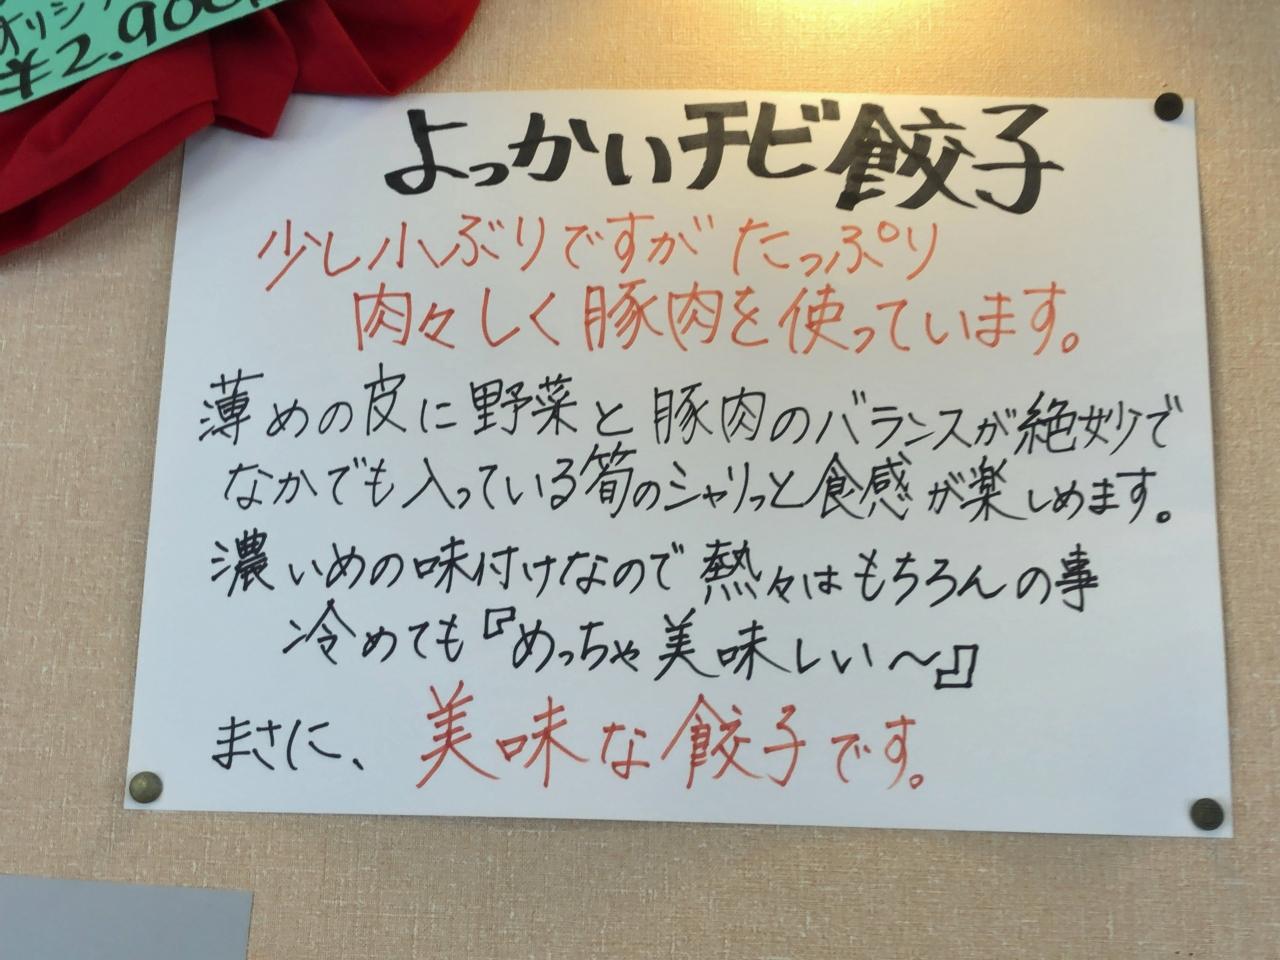 オリジ
¥2.900
よっかいチビ餃子
少し小ぶりですがたっぷり
肉々しく豚肉を使っています。
薄めの皮に野菜と豚肉のバランスが絶妙で
なかでも入っている筍のシャリっと食感が楽しめます。
濃いめの味付けなので熱々はもちろんの事
冷めても『めっちゃ美味しい〜』
まさに、美味な餃子です。